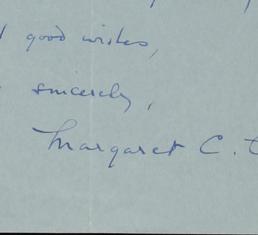 good wishes,
sincerely,
Margaret C.